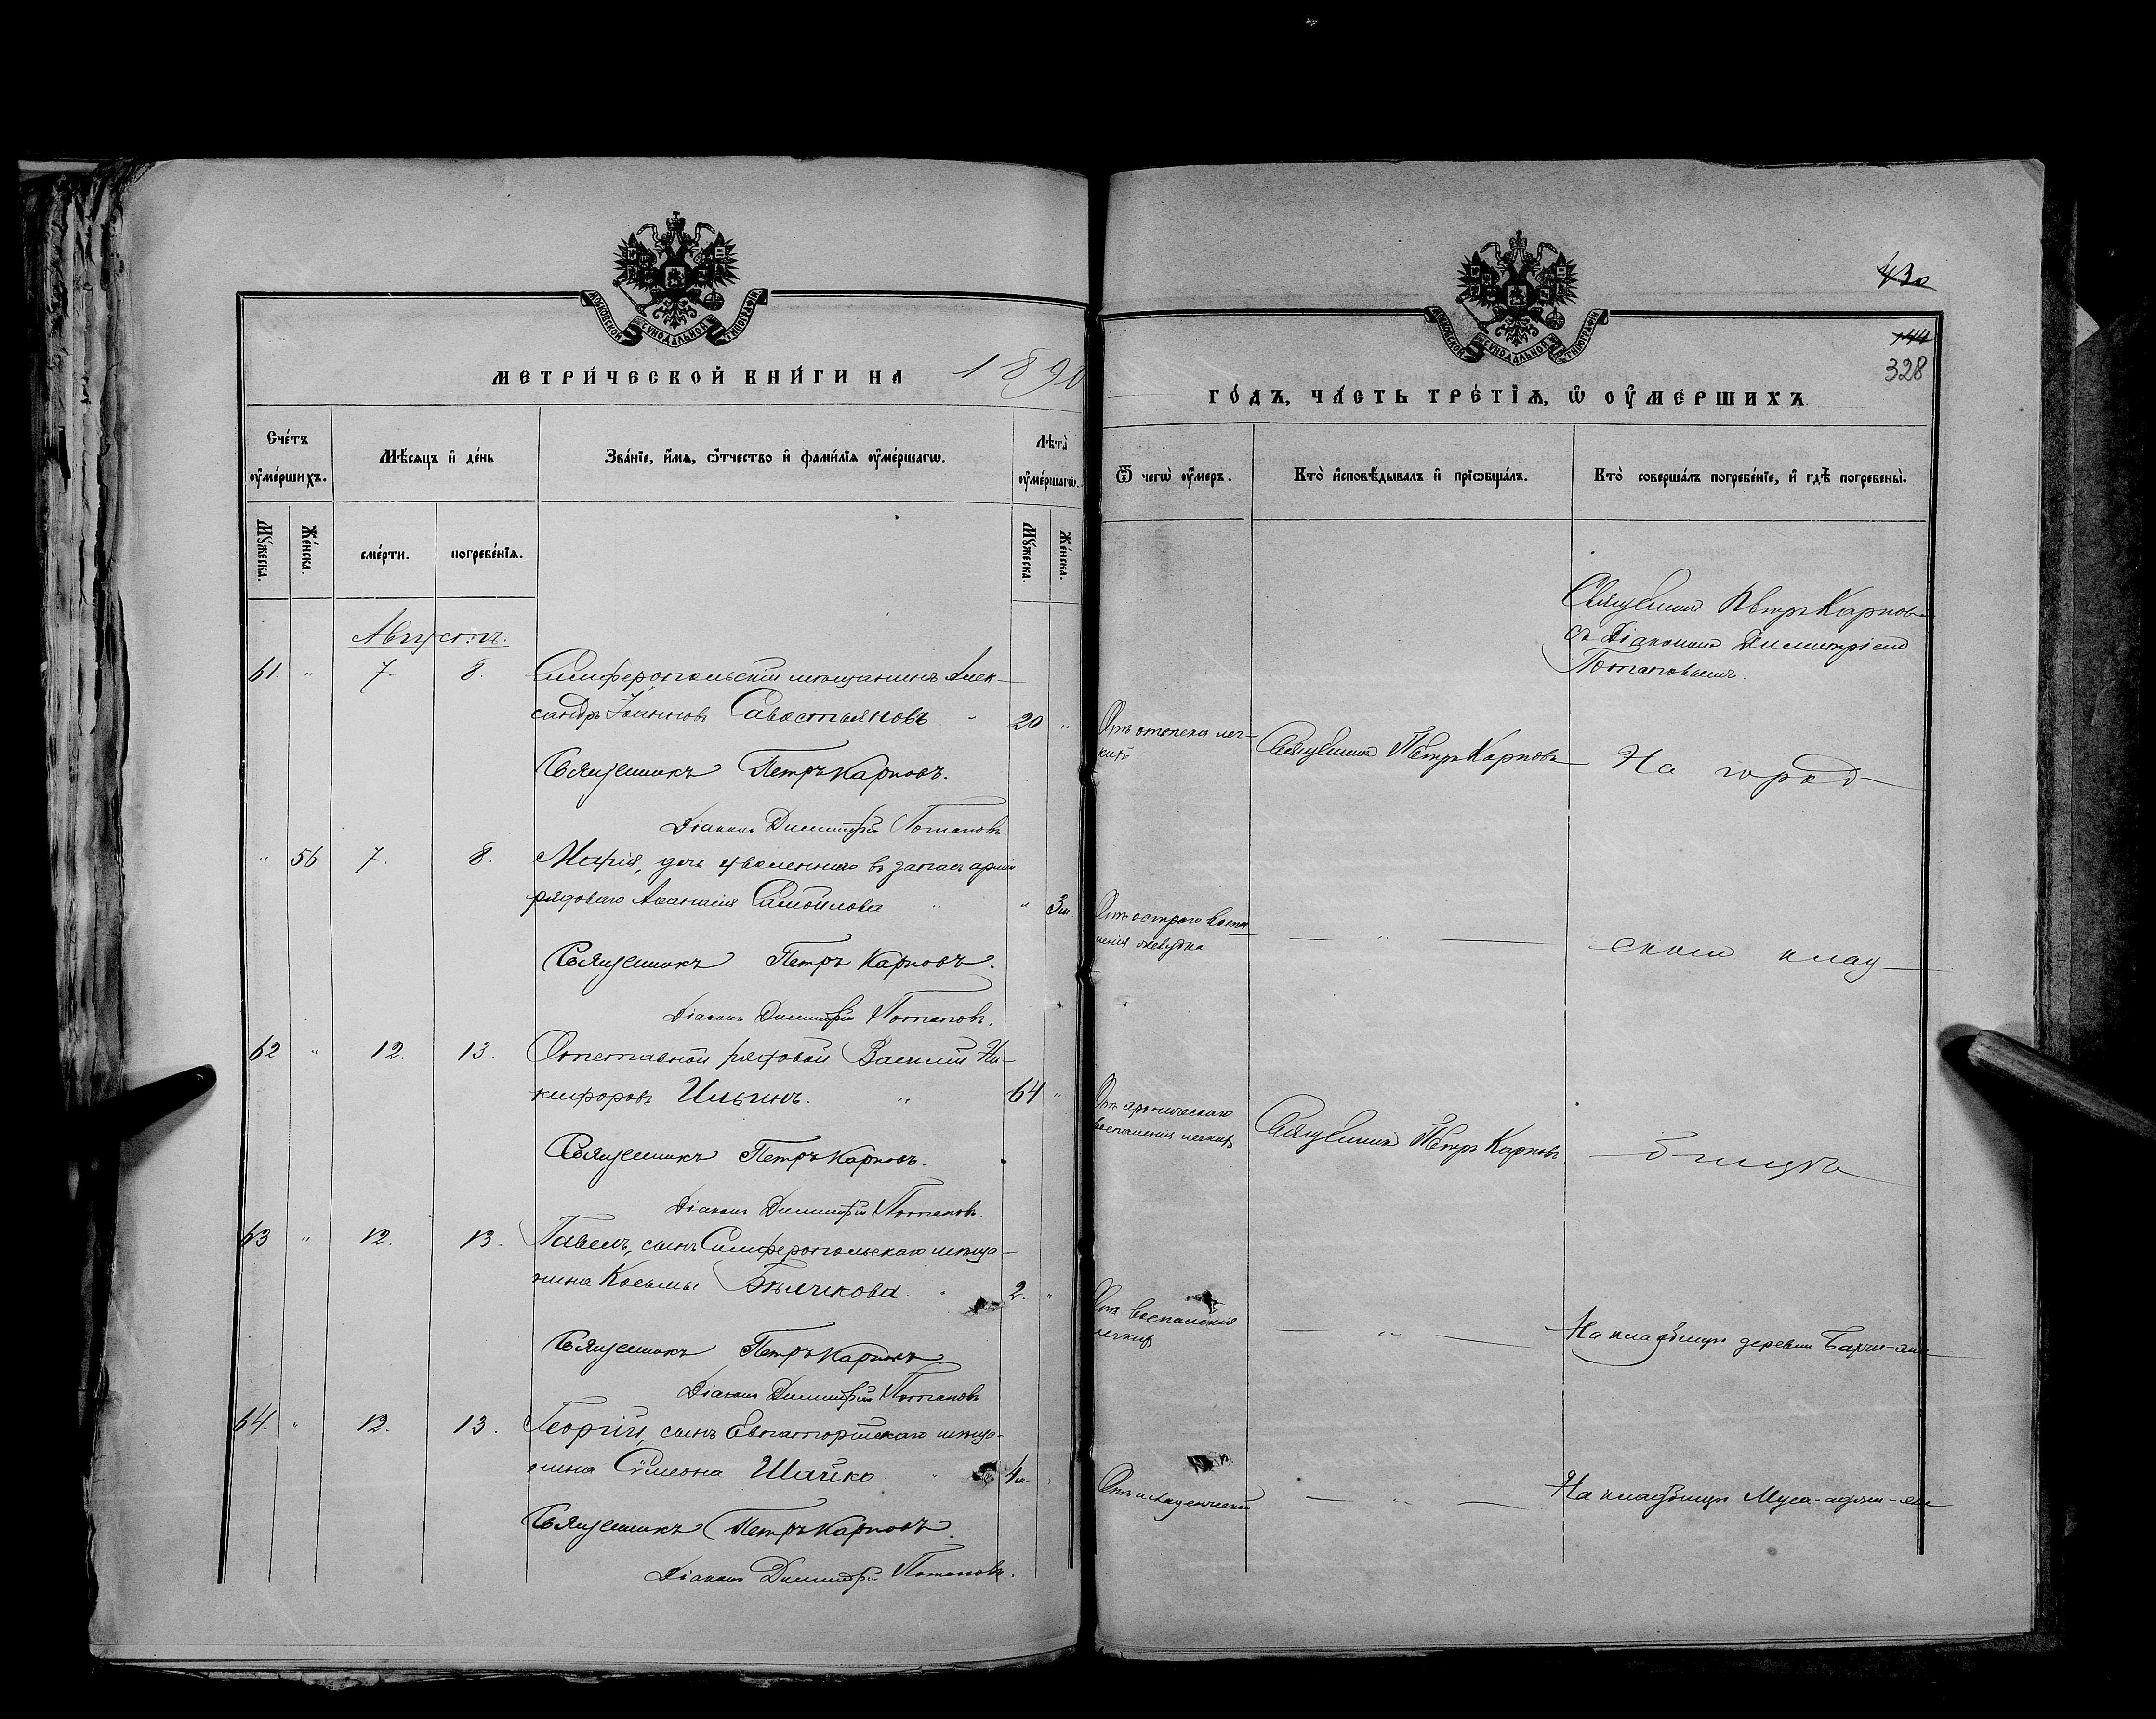 МОСКОВСКОЙ СѴНОДАЛЬНОЙ ТИПОГРАФІИ
МЕТРИ́ЧЕСКОЙ КНИ́ГИ НА 1890
Сче́тъ ᲂу҆ме́ршихъ.
Мѣ́сяцъ и҆ де́нь
Зва́нїе, и҆́мѧ, ѻ҆́тчество и҆ фами́лїѧ ᲂу҆ме́ршагѡ.
Лѣ́та ᲂу҆ме́ршагѡ.
Мꙋ́жеска.
Же́нска.
сме́рти.
погребе́нїѧ.
Мꙋ́жеска.
Же́нска.
Августъ.
61. " 7. 8. Симферопольскій мѣщанинъ Алек-
сандръ Іоанновъ Савостьяновъ " 20 "
Священникъ Петръ Карповъ.
Діаконъ Димитрій Потаповъ
" 56 7. 8. Марія, дочь уволеннаго въ запасъ арміи
рядоваго Аѳанасія Самойлова " " 3 м.
Священникъ Петръ Карповъ.
Діаконъ Димитрій Потаповъ.
62 " 12. 13. Отставной рядовой Василій Ни-
кифоровъ Ильинъ. " 64 "
Священникъ Петръ Карповъ.
Діаконъ Димитрій Потаповъ.
63 " 12. 13. Павелъ, сынъ Симферопольскаго мѣща-
нина Косьмы Бѣлчкова. " 2. "
Священникъ Петръ Карповъ
Діаконъ Димитрій Потаповъ
64. " 12. 13. Георгій, сынъ Евпаторійскаго мѣща-
нина Сѵмеона Шайко. " 4 м. "
Священникъ Петръ Карповъ.
Діаконъ Димитрій Потаповъ.
МОСКОВСКОЙ СѴНОДАЛЬНОЙ ТИПОГРАФІИ
430
144
328
ГО́ДЪ, ЧА́СТЬ ТРЕ́ТІѦ, Ѡ҆ ОУ҆МЕ́РШИХЪ
Ѿ чегѡ̀ ᲂу҆́меръ.
Кто̀ и҆сповѣ́дывалъ и҆ прїѡбща́лъ.
Кто̀ соверша́лъ погребе́нїе, и҆ гдѣ̀ погребены̀.
Священникъ Петръ Карповъ
съ Діакономъ Димитріемъ
Потаповымъ.
Отъ отопека лег-
кихъ
Священникъ Петръ Карповъ
На город-
Отъ остраго воспа
ленія желудка
— " —
скомъ клад-
Отъ хроническаго
воспаленія легкихъ
Священникъ Петръ Карповъ
бищѣ
Отъ воспаленія
легкихъ
— " —
На кладбищѣ деревни
Отъ младенческой
— " —
На кладбищѣ Муса-